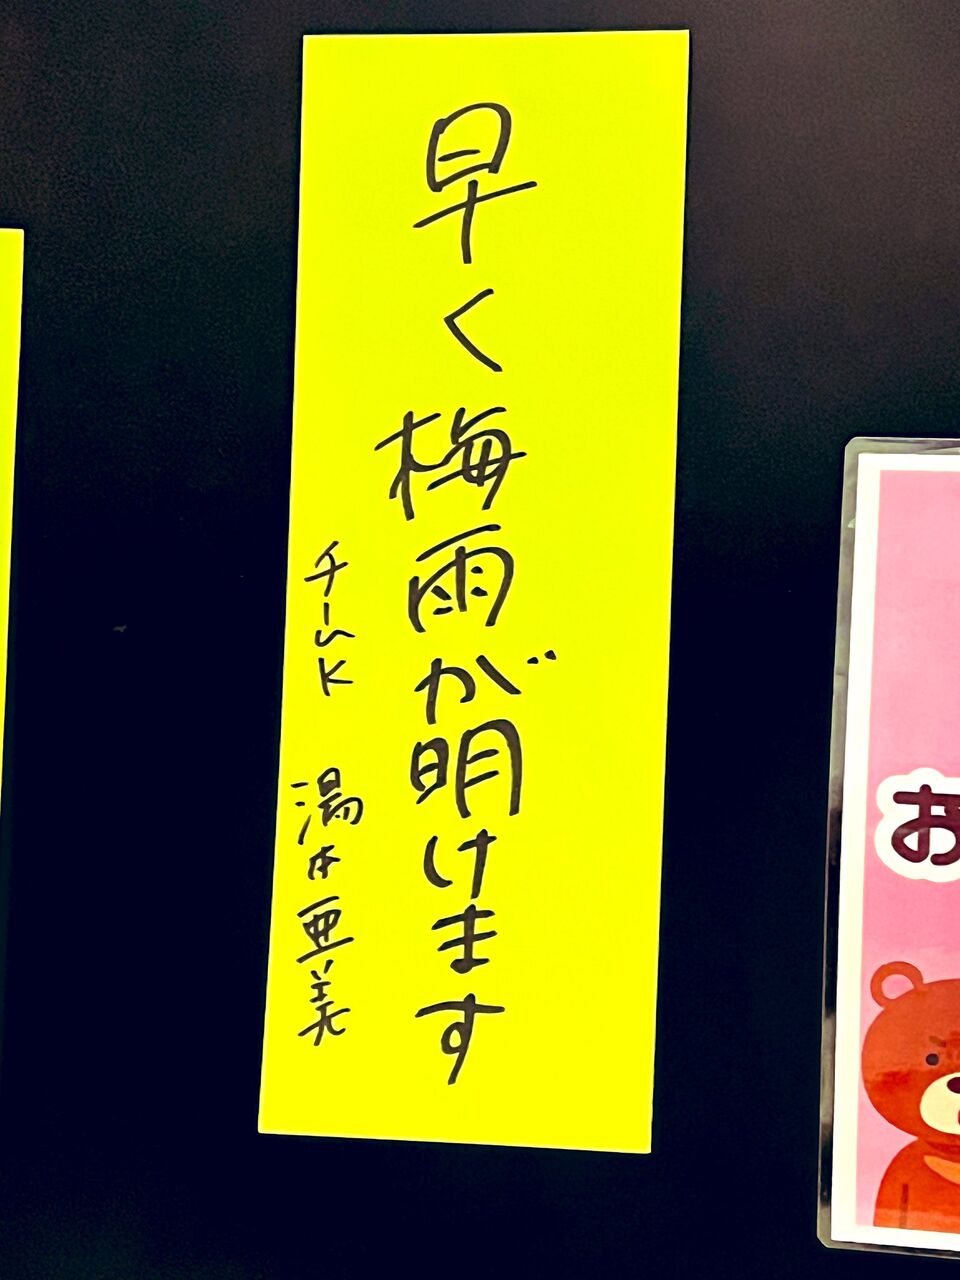 早く梅雨が明けます
チームK 湯本亜美
お